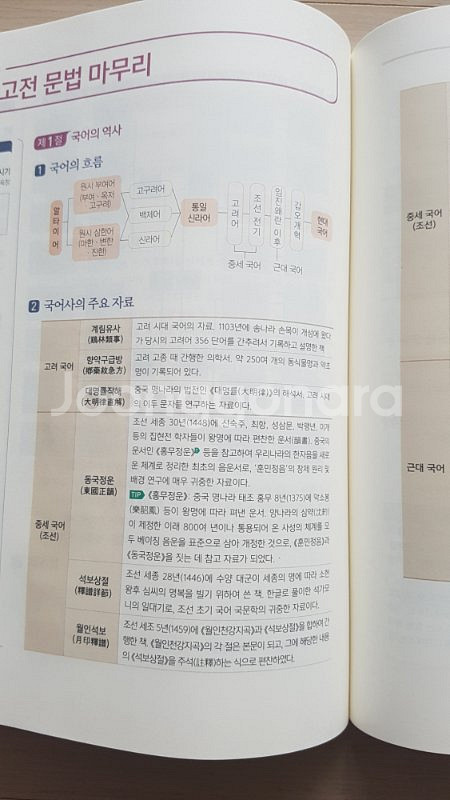 고전 문법 마무리
제1절 국어의 역사
1 국어의 흐름
알타이어
원시 부여어
(부여·옥저
고구려어)
원시 삼한어
(마한·변한
진한)
고구려어
백제어
신라어
통일
신라어
고려어
조선 전기
임진왜란 이후
갑오개혁
현대
국어
중세 국어
근대 국어
2 국어사의 주요 자료
고려 국어
계림유사
(鷄林類事)
고려 시대 국어의 자료. 1103년에 송나라 손목이 개성에 왔다
가 당시의 고려어 356 단어를 간추려서 기록하고 설명한 책
향약구급방
(鄕藥救急方)
고려 고종 때 간행한 의학서. 약 250여 개의 동식물명과 약초
명이 기록되어 있다.
대명률직해
(大明律直解)
중국 명나라의 법전인 《대명률(大明律)》의 해석서. 고려 시대
의 이두 문자를 연구하는 자료이다.
중세 국어
(조선)
동국정운
(東國正韻)
조선 세종 30년(1448)에 신숙주, 최항, 성삼문, 박팽년, 이개
등의 집현전 학자들이 왕명에 따라 편찬한 운서(韻書). 중국의
운서인 《홍무정운》 등을 참고하여 우리나라의 한자음을 새로
운 체계로 정리한 최초의 음운서로, '훈민정음'의 창제 원리 및
배경 연구에 매우 귀중한 자료이다.
TIP 《홍무정운》: 중국 명나라 태조 홍무 8년(1375)에 악소봉
(樂韶鳳) 등이 왕명에 따라 펴낸 운서. 양나라의 심약(沈約)
이 제정한 이래 800여 년이나 통용되어 온 사성의 체계를 모
두 베이징 음운을 표준으로 삼아 개정한 것으로, 《훈민정음》과
《동국정운》을 짓는 데 참고 자료가 되었다.
석보상절
(釋譜詳節)
조선 세종 28년(1446)에 수양 대군이 세종의 명에 따라 소헌
왕후 심씨의 명복을 빌기 위하여 쓴 책. 한글로 풀이한 석가모
니의 일대기로, 조선 초기 국어 국문학의 귀중한 자료이다.
월인석보
(月印釋譜)
조선 세조 5년(1459)에 《월인천강지곡》과 《석보상절》을 합하여 간
행한 책. 《월인천강지곡》의 각 절은 본문이 되고, 그에 해당한 내용
의 《석보상절》을 주석(註釋)하는 식으로 편찬하였다.
중세 국어
(조선)
근대 국어